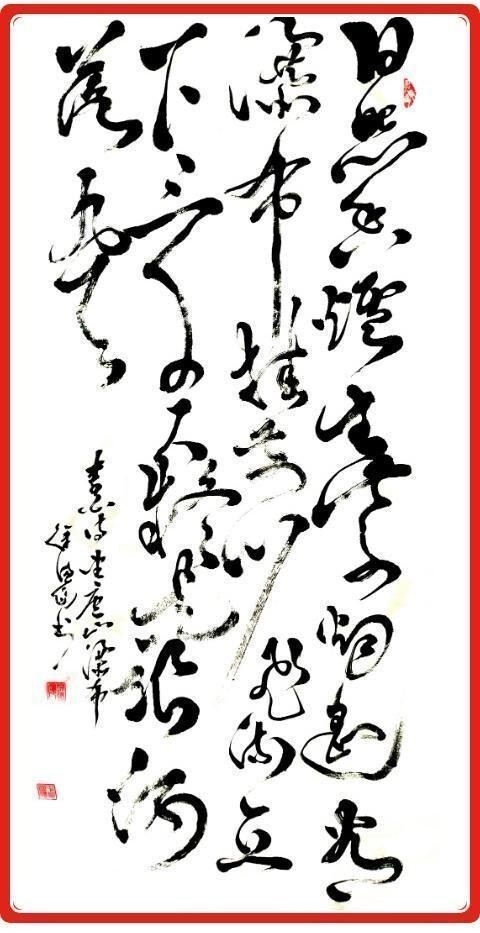 日照香爐生紫烟遥看
瀑布挂前川飛流直
下三千尺疑是银河
落九天
李白诗望庐山瀑布
徐书